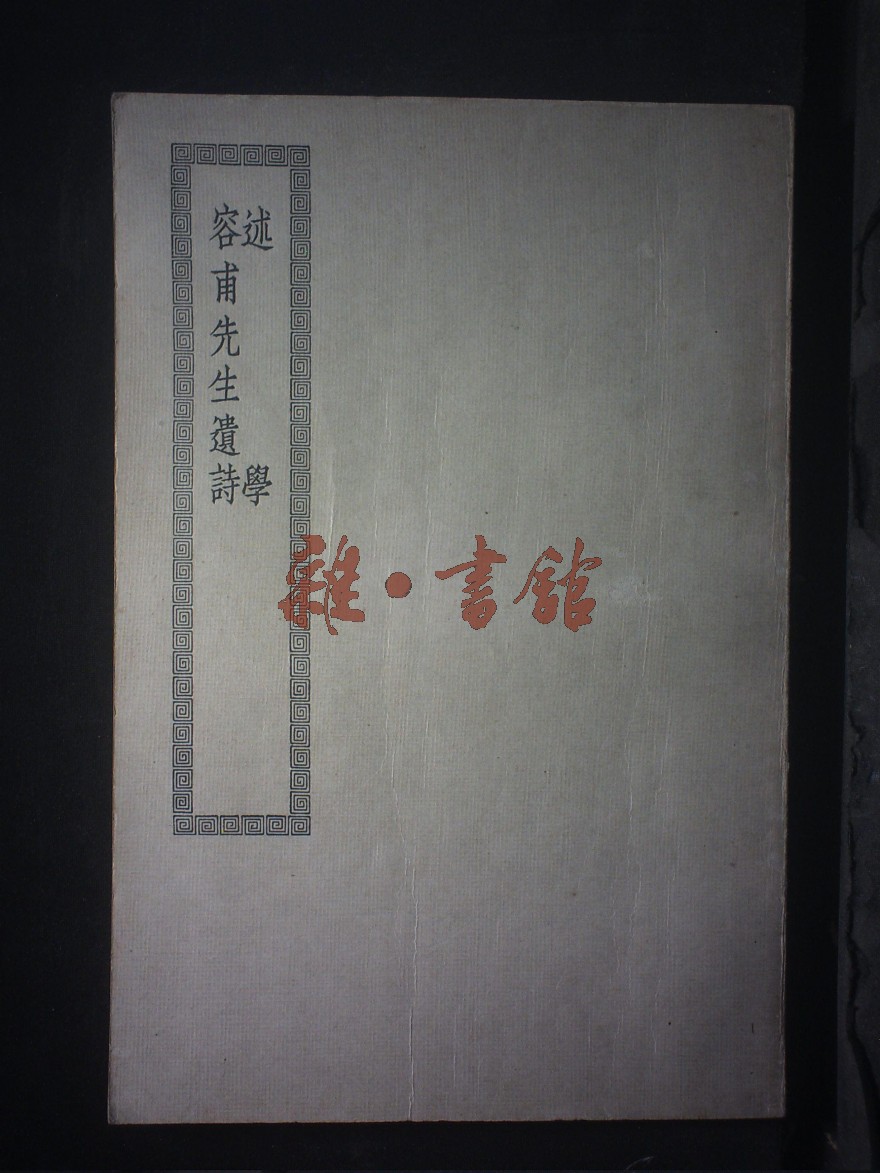 述學
容甫先生遺詩
雜·書館